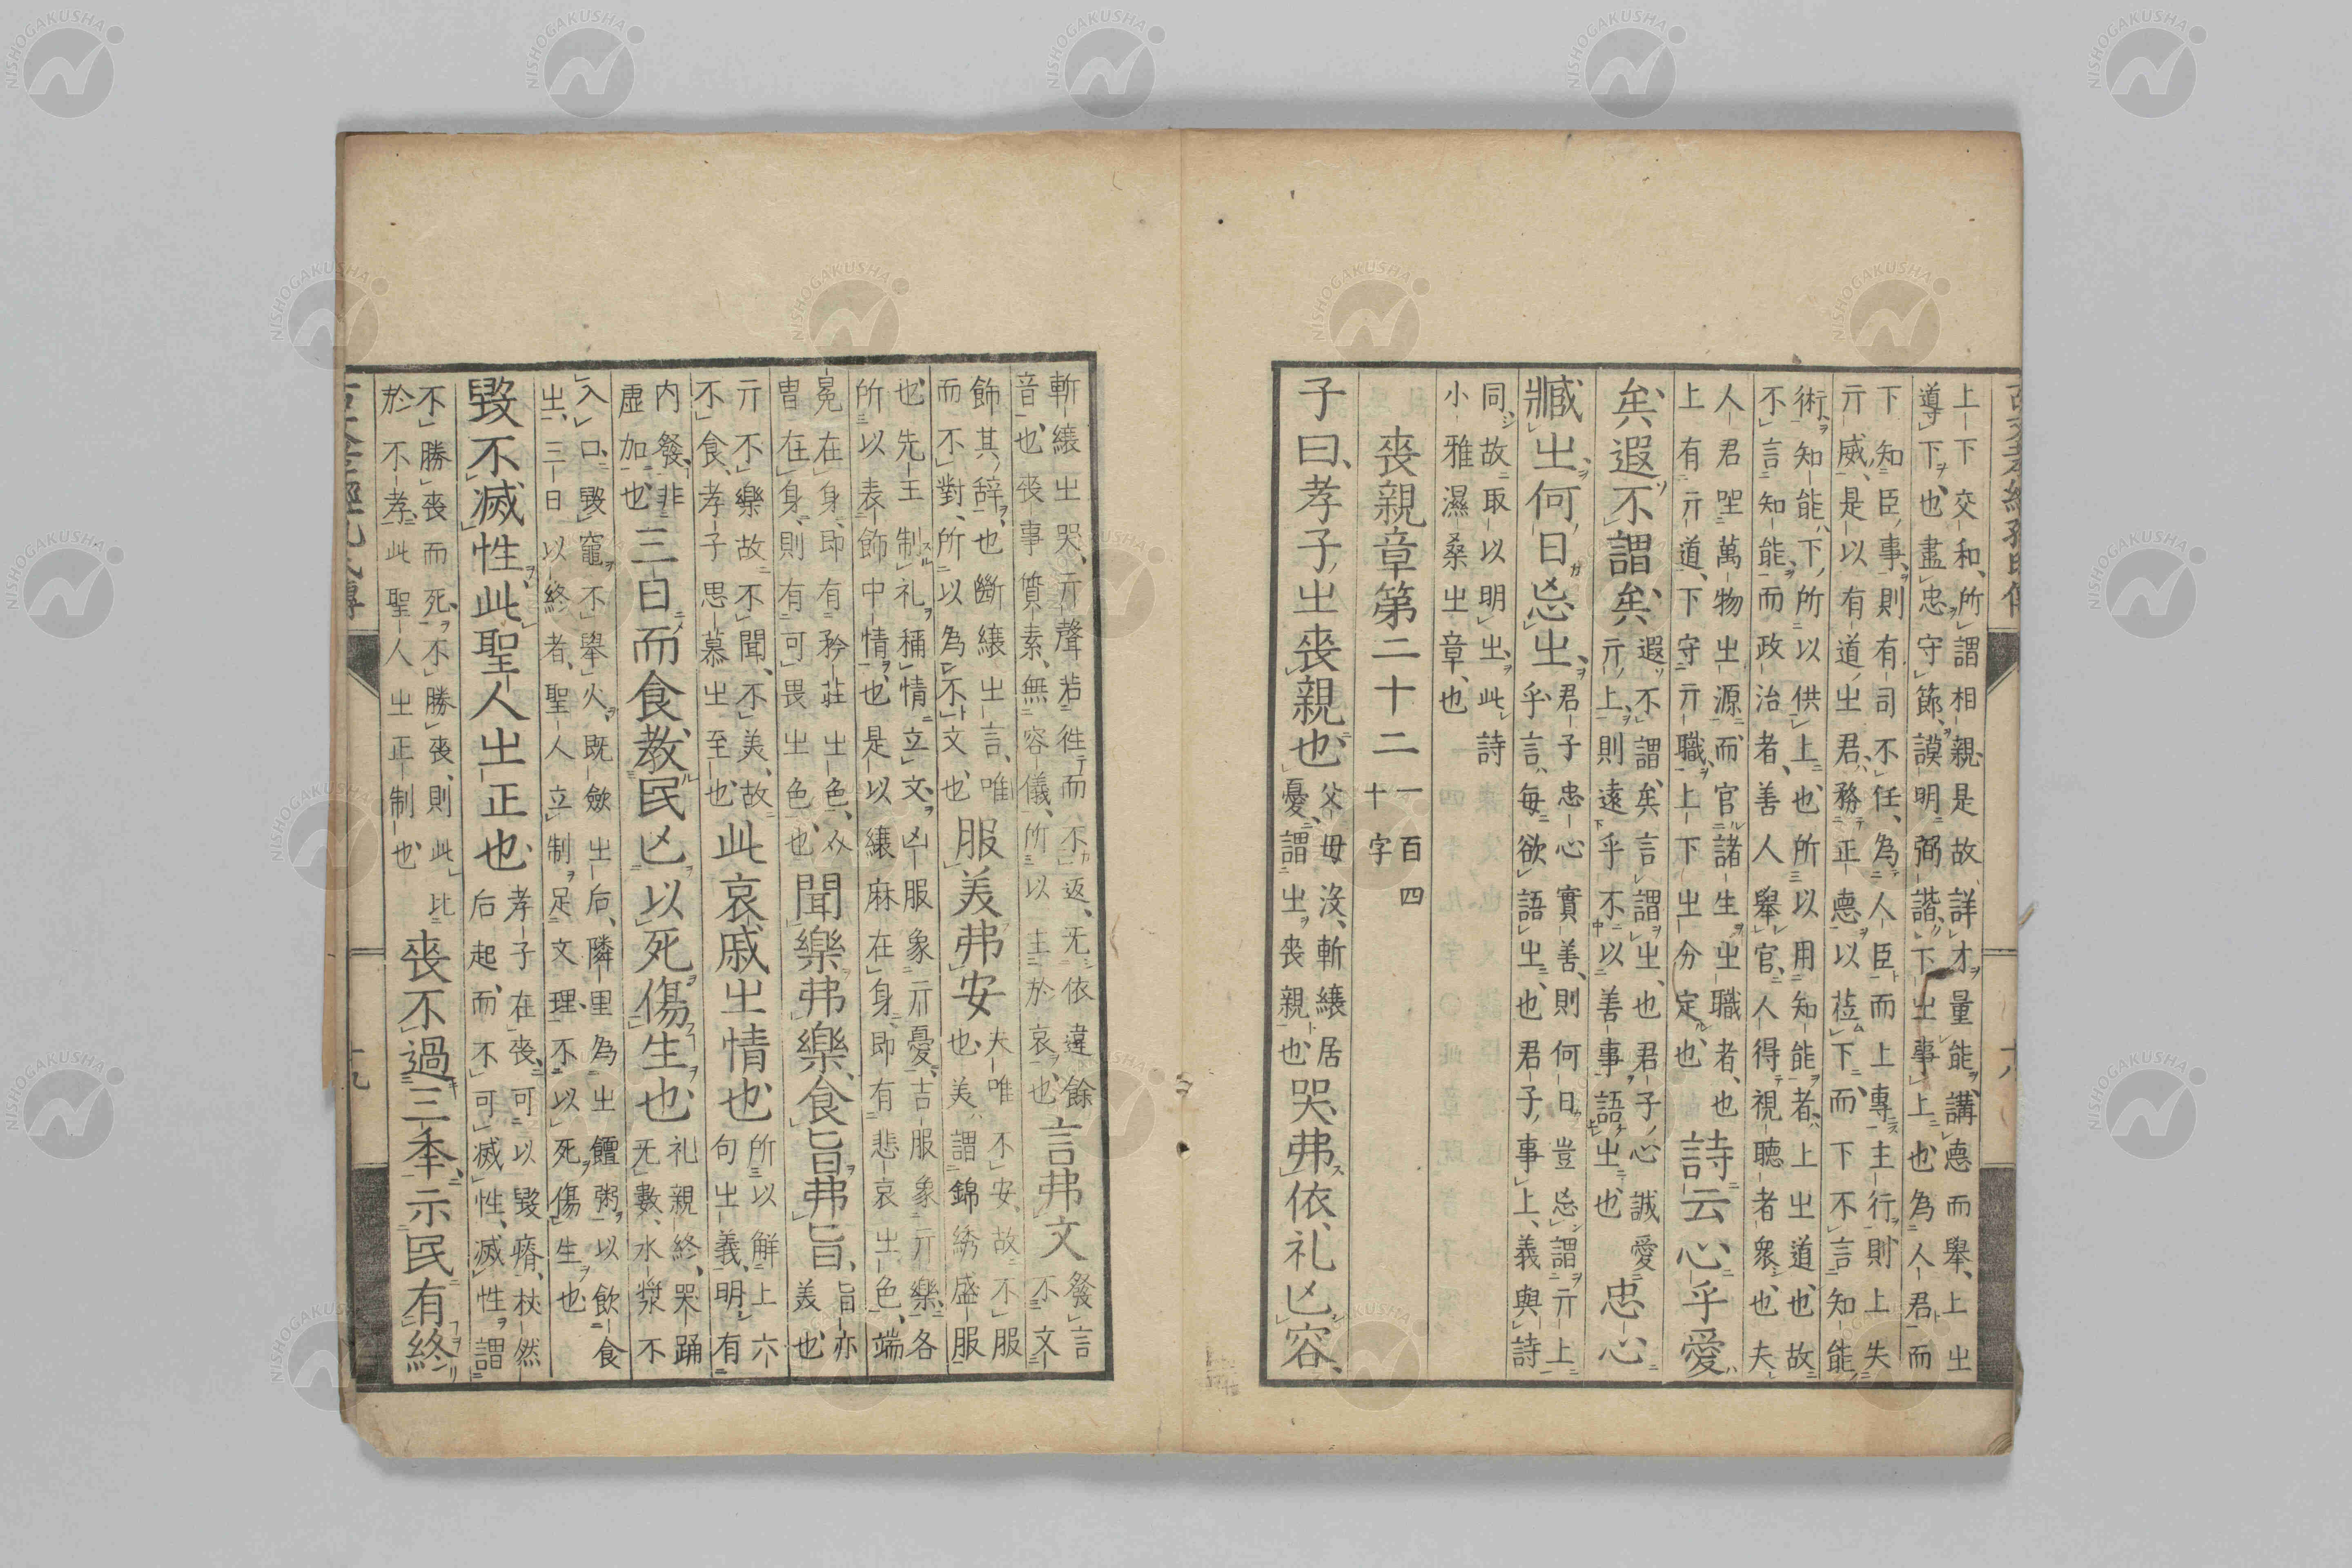 古文孝經孔氏傳
上下交和所謂相親是故詳才量能講悳而舉上㞢
導下也盡忠守節謨明弼諧下㞢事上也為人君而
下知臣事則有司不任為人臣而上專主行則上失
亓威是以有道㞢君務正悳以莅下而下不言知能
術知能下所以供上也所以用知能者上㞢道也故
不言知能而政治者善人舉官人得視聽者衆也夫
人君㘴萬物㞢源而官諸生㞢職者也
上有亓道下守亓職上下㞢分定也
詩云心乎愛
矣遐不謂矣
遐不謂矣言謂㞢也君子心誠愛
亓上則遠乎不以善事語㞢也
忠心
臧㞢何日忘㞢
君子忠心實善則何日豈忘謂亓上
乎言每欲語㞢也君子事上義與詩
同故取以明㞢此詩
小雅濕桑㞢章也
喪親章第二十二
一百四
十字
子曰孝子㞢喪親也
父毋没斬縗居
憂謂㞢喪親也
哭弗依礼亾容
斬縗㞢哭亓聲若徃而不返无依違餘
音也喪事質素無容儀所以主於哀也
言弗文
發言
不文
飾其辞也斷縗㞢言唯
而不對所以為不文也
服美弗安
夫唯不安故不服
也美謂錦綉盛服
也先王制礼稱情立文凶服象亓憂吉服象亓樂各
所以表飾中情也是以縗麻在身即有悲哀㞢色端
冕在身即有矜莊㞢色㕕
冑在身則有可畏㞢色也
聞樂弗樂食旨弗旨
旨亦
美也
亓不樂故不聞不美故
不食孝子思慕㞢至也
此哀戚㞢情也
所以解上六
句㞢義明有
内發非
虛加也
三日而食教民亾以死傷生也
礼親終哭踊
无數水漿不
入口毀竈不舉火既斂㞢后隣里為㞢饘粥以飲食
㞢三日以終者聖人立制足文理不以死傷生也
毀不滅性此聖人㞢正也
孝子在喪可以毀瘠杖然
后起而不可滅性滅性謂
不勝喪而死不勝喪則此比
於不孝此聖人㞢正制也
喪不過三秊示民有終